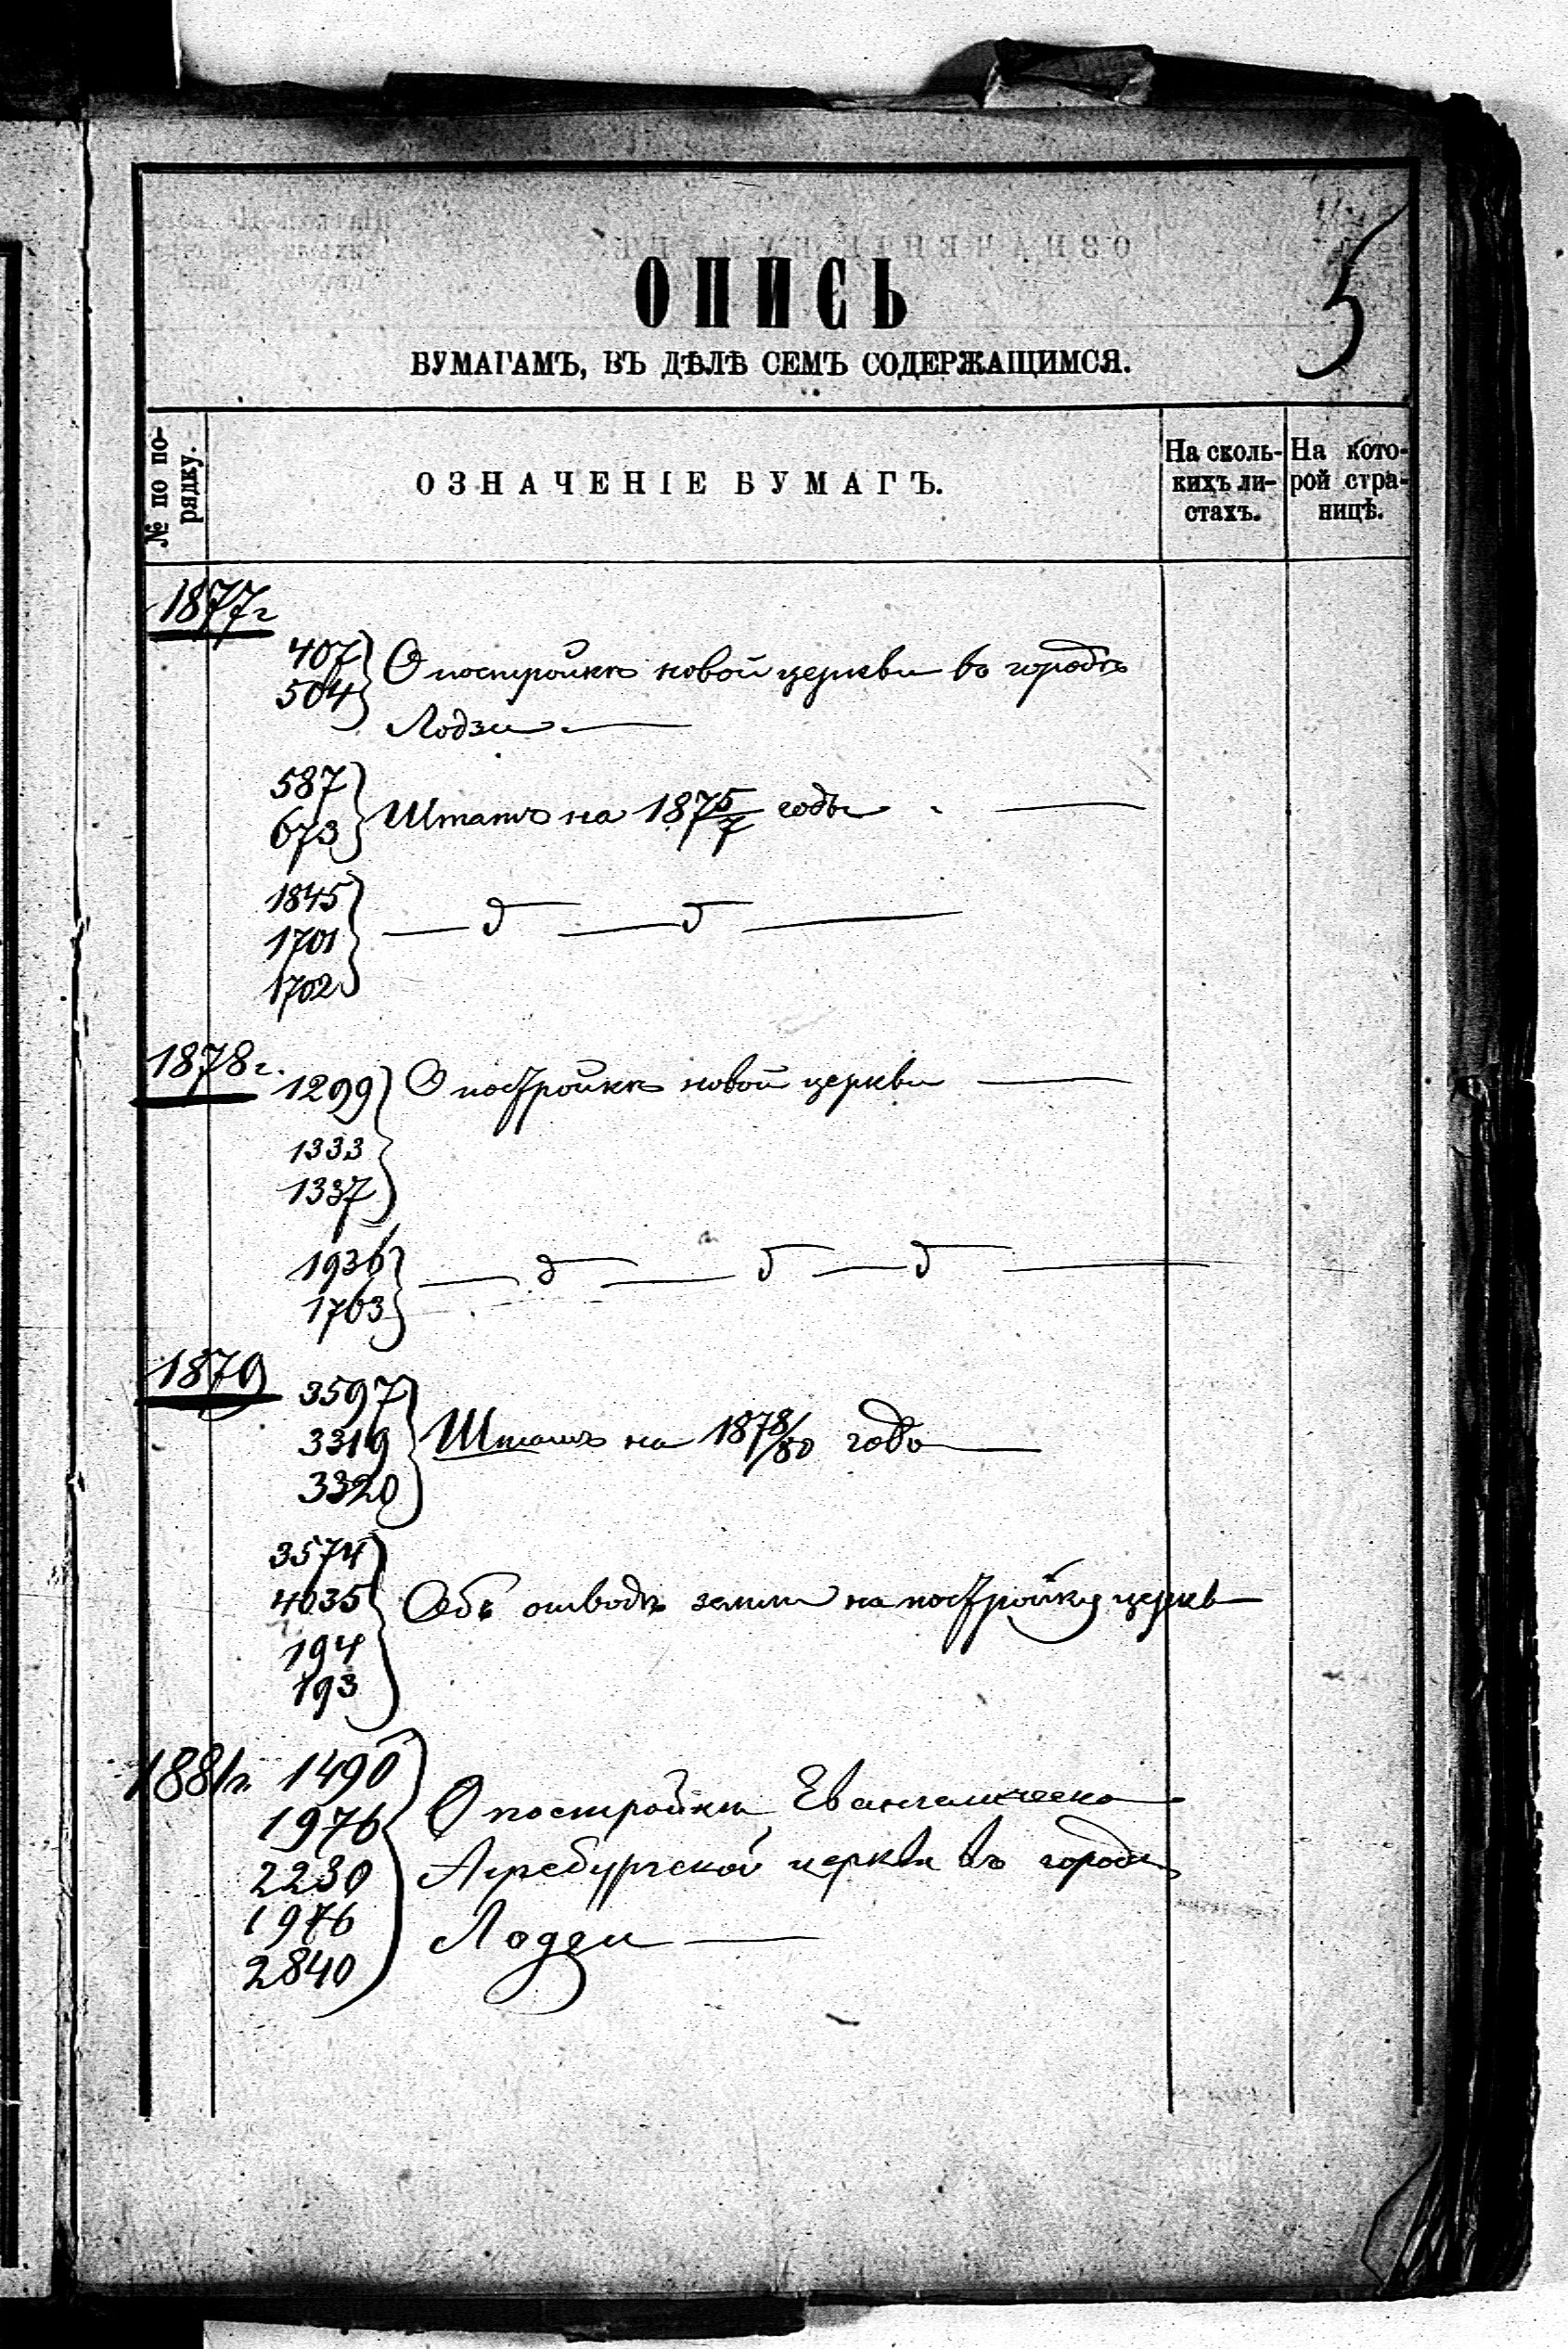 5
ОПИСЬ
БУМАГАМЪ, ВЪ ДѢЛѢ СЕМЪ СОДЕРЖАЩИМСЯ.
№ по по-
рядку.
ОЗНАЧЕНІЕ БУМАГЪ.
На сколь-
кихъ ли-
стахъ.
На кото-
рой стра-
ницѣ.
1877г
407
504
О постройкѣ новой церкви въ городѣ
Лодзи
587
673
Штатъ на 1875/7 годы
1845
1701
1702
— д — д —
1878г.
1299
О постройкѣ новой церкви
1333
1337
1936
1763
— д — д — д —
1879
3597
3319
3320
Штатъ на 1878/80 годъ
3574
4035
194
193
Объ отводѣ земли на постройку церкв
1881г.
1490
1976
2230
1976
2840
О постройки Евангелическо
Аугсбургской церкви въ городѣ
Лодзи